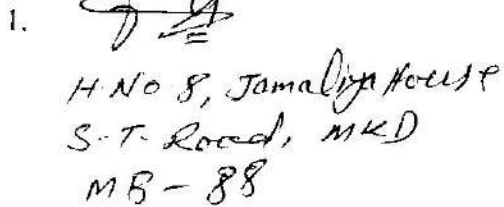 1.
H.No 8, Jamaliya House
S.T. Road, MKD
MB - 88